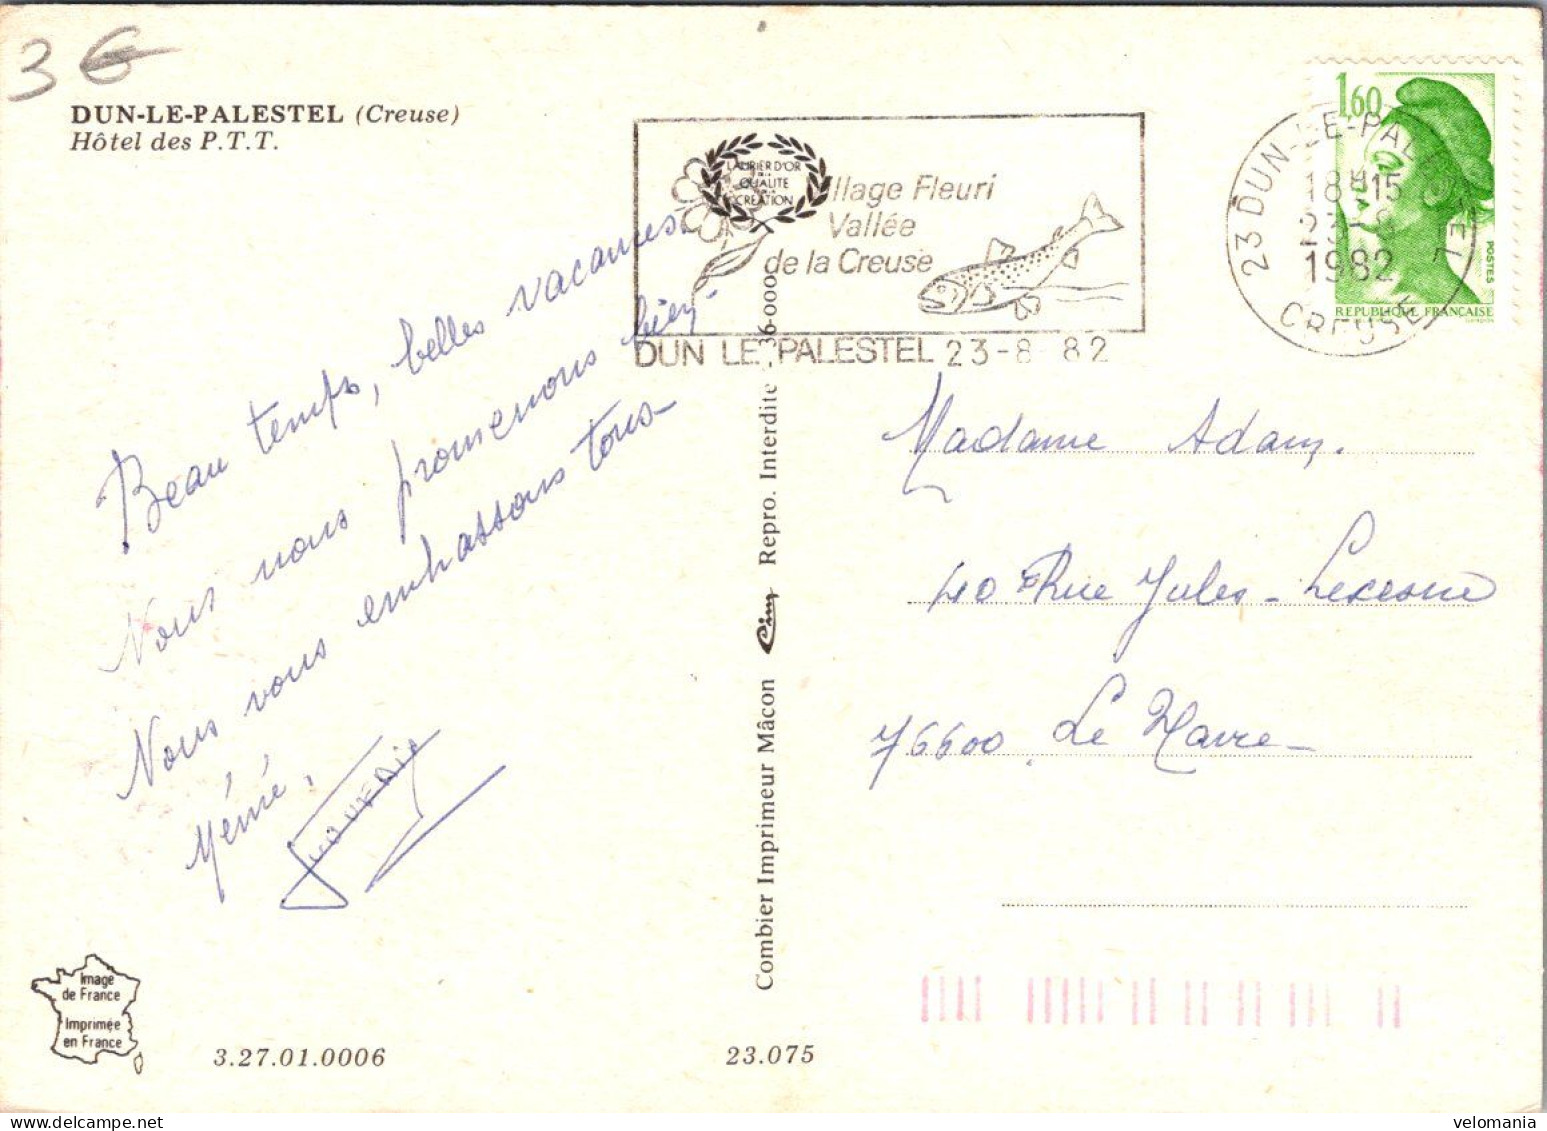 3 €
DUN-LE-PALESTEL (Creuse)
Hôtel des P.T.T.
LAURIER D'OR
QUALITE
CREATION
Village Fleuri
Vallée
de la Creuse
DUN LE PALESTEL 23-8-82
23 DUN-LE-PALESTEL
18H15
23-8
1982
CREUSE
1,60
POSTES
REPUBLIQUE FRANÇAISE
Beau temps, belles vacances.
Nous nous promenons bien.
Nous vous embrassons tous
Mémé.
Madame Adam.
40 Rue Jules-Lecesne
76600 Le Havre
Combier Imprimeur Mâcon Cim Repro. Interdite 36-000
Image
de France
Imprimée
en France
3.27.01.0006
23.075
velomania